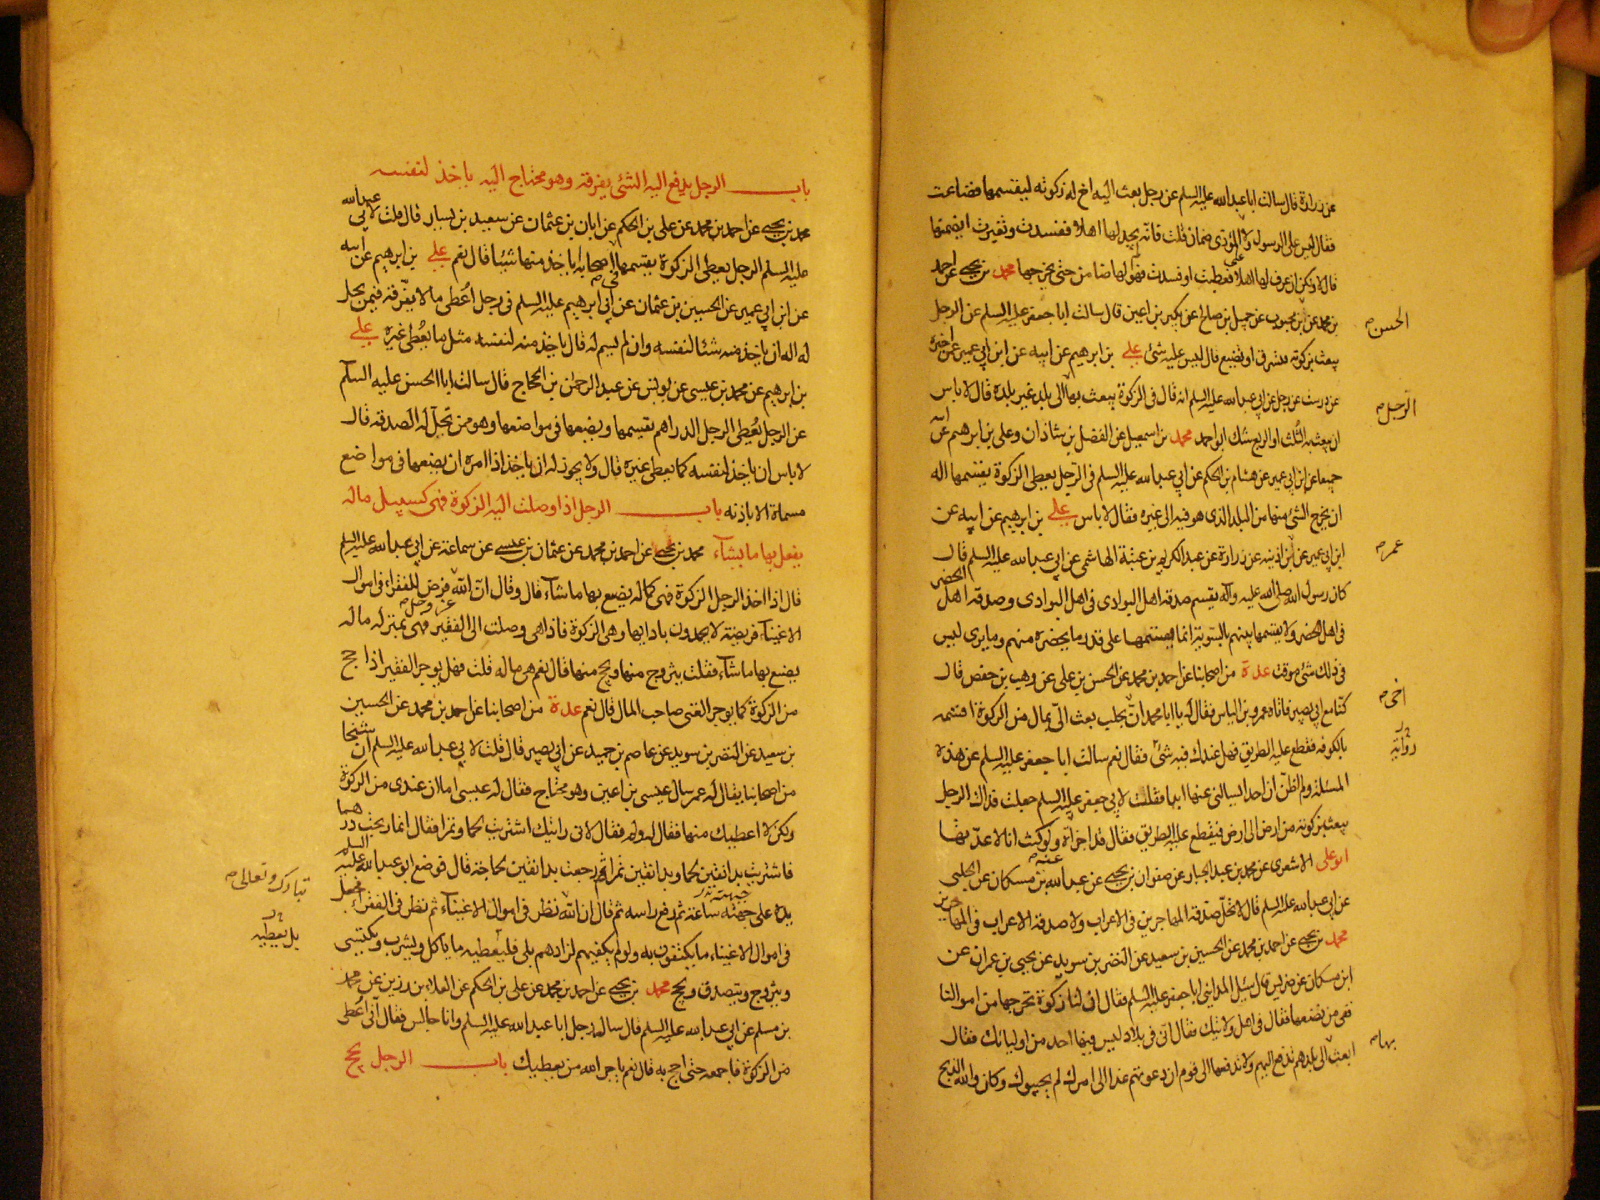 عن زرارة قال سالت ابا عبد الله عليه السلم عن رجل بعث اليه اخ له زكوته ليقسمها فضاعت
فقال ليس على الرسول ولا على المؤدى ضمان قلت فانه لم يجد لها اهلا ففسدت وتغيرت ايضمنها
قال لا ولكن ان عرف لها اهلا فعطبت او فسدت فهو لها ضامن حتى يخرجها محمد بن يحيى عن احمد
بن محمد عن بن محبوب عن جميل بن صالح عن بكير بن اعين قال سالت ابا جعفر عليه السلم عن الرجل
الحسن
يبعث بزكوته فتسرق او تضيع قال ليس عليه شئ علي بن ابرهيم عن ابيه عن ابن ابي عمير عمن اخبره
عن درست عن رجل عن ابي عبد الله عليه السلم انه قال في الزكوة يبعث بها الى بلد غير بلده قال لا باس
الرجل
ان يبعث بالثلث او الربع شك ابو احمد محمد بن اسمعيل عن الفضل بن شاذان وعلي بن ابرهيم عن ابيه
جميعا عن ابن ابي عمير عن هشام بن الحكم عن ابي عبد الله عليه السلم في الرجل يعطى الزكوة يقسمها اله
ان يخرج الشئ منها من البلد الذى هو فيه الى غيره فقال لا باس علي بن ابرهيم عن ابيه عن
ابن ابي عمير عن ابن اذينه عن زرارة عن عبد الكريم بن عتبة الهاشمى عن ابي عبد الله عليه السلم قال
عمر
كان رسول الله صلى الله عليه وآله يقسم صدقة اهل البوادى في اهل البوادى وصدقة اهل الحضر
في اهل الحضر ولا يقسمها بينهم بالسوية انما يقسمها على قدر ما يحضره منهم وما يرى ليس
في ذلك شئ موقت عدة من اصحابنا عن احمد بن محمد عن الحسن بن علي عن وهيب بن حفص قال
كنا مع ابي بصير فاتاه عمرو بن الياس فقال له يا ابا محمد ان بحلب بعث الى بمال من الزكوة اقسمه
اخى
بالكوفه فقطع عليه الطريق فهل عندك فيه شئ فقال نعم سالت ابا جعفر عليه السلم عن هذه
رواية
المسئلة ولم اظن ان احدا يسالنى عنها ابدا فقلت لابي جعفر عليه السلم جعلت فداك الرجل
يبعث بزكوته من ارض الى ارض فيقطع عليه الطريق فقال قد اجزأته ولو كنت انا لاعدتها
ابو علي الاشعرى عن محمد بن عبد الجبار عن صفوان بن يحيى عن عبد الله بن مسكان عن الحلبى
عن ابي عبد الله عليه السلم قال لا تحل صدقة المهاجرين في الاعراب ولا صدقة الاعراب في المهاجرين
محمد بن يحيى عن احمد بن محمد عن الحسين بن سعيد عن النضر بن سويد عن يحيى بن عمران عن
ابن مسكان عن ضريس قال سئل المداينى ابا جعفر عليه السلم فقال ان لنا زكوة نخرجها من اموالنا
ففى من نضعها فقال في اهل ولايتك فقال انى في بلاد ليس فيها احد من اوليائك فقال
ابعث الى بلدهم تدفع اليهم ولا تدفعها الى قوم ان دعوتهم غدا الى امرك لم يجيبوك وكان والله الذبح
بها
باب الرجل يدفع اليه الشئ يفرقه وهو محتاج اليه ياخذ لنفسه
محمد بن يحيى عن احمد بن محمد عن علي بن الحكم عن ابان بن عثمان عن سعيد بن يسار قال قلت لابي عبد الله
عليه السلم الرجل يعطى الزكوة يقسمها في اصحابه اياخذ منها شيئا قال نعم علي بن ابرهيم عن ابيه
عن ابن ابي عمير عن الحسين بن عثمان عن ابي ابرهيم عليه السلم في رجل اعطى مالا يفرقه فيمن يحل
له اله ان ياخذ منه شئا لنفسه وان لم يسم له قال ياخذ منه لنفسه مثل ما يعطى غيره علي
بن ابرهيم عن محمد بن عيسى عن يونس عن عبد الرحمن بن الحجاج قال سالت ابا الحسن عليه السلم
عن الرجل يعطى الرجل الدراهم يقسمها ويضعها في مواضعها وهو من تحل له الصدقة قال
لا باس ان ياخذ لنفسه كما يعطى غيره قال ولا يجوز له ان ياخذ اذا امره ان يضعها في مواضع
مسماة الا باذنه باب الرجل اذا وصلت اليه الزكوة فهى كسبيل ماله
يفعل بها ما يشاء محمد بن يحيى عن احمد بن محمد عن عثمان بن عيسى عن سماعة عن ابي عبد الله عليه السلم
قال اذا اخذ الرجل الزكوة فهى كماله يصنع بها ما شاء قال وقال ان الله عز وجل فرض للفقراء في اموال
الاغنياء فريضة لا يحمدون بادائها وهى الزكوة فاذا هى وصلت الى الفقير فهى بمنزلة ماله
يصنع بها ما شاء فقلت يتزوج منها ويحج منها قال نعم هى ماله قلت فهل يوجر الفقير اذا حج
من الزكوة كما يوجر الغنى صاحب المال قال نعم عدة من اصحابنا عن احمد بن محمد عن الحسين
بن سعيد عن النضر بن سويد عن عاصم بن حميد عن ابي بصير قال قلت لابي عبد الله عليه السلم ان شيخا
من اصحابنا يقال له عمر سال عيسى بن اعين وهو محتاج فقال له عيسى اما ان عندى من الزكوة
ولكن لا اعطيك منها فقال له ولم فقال لانى رايتك اشتريت لحما وتمرا فقال انما ربحت درهما
فاشتريت بدانقين لحما وبدانقين تمرا ثم رجعت بدانقين لحاجة قال فوضع ابو عبد الله عليه السلم
يده على جبهته ساعة ثم رفع راسه ثم قال ان الله نظر في اموال الاغنياء ثم نظر في الفقراء فجعل
تبارك وتعالى
في اموال الاغنياء ما يكتفون به ولو لم يكفهم لزادهم بلى فليعطيه ما ياكل ويشرب ويكتسى
بل يعطيه
ويتزوج ويتصدق ويحج محمد بن يحيى عن احمد بن محمد عن علي بن الحكم عن العلاء بن رزين عن محمد
بن مسلم عن ابي عبد الله عليه السلم قال ساله رجل ابا عبد الله عليه السلم وانا جالس فقال انى اعطى
من الزكوة فاجمعه حتى احج به قال نعم ياجر الله من يعطيك باب الرجل يحج